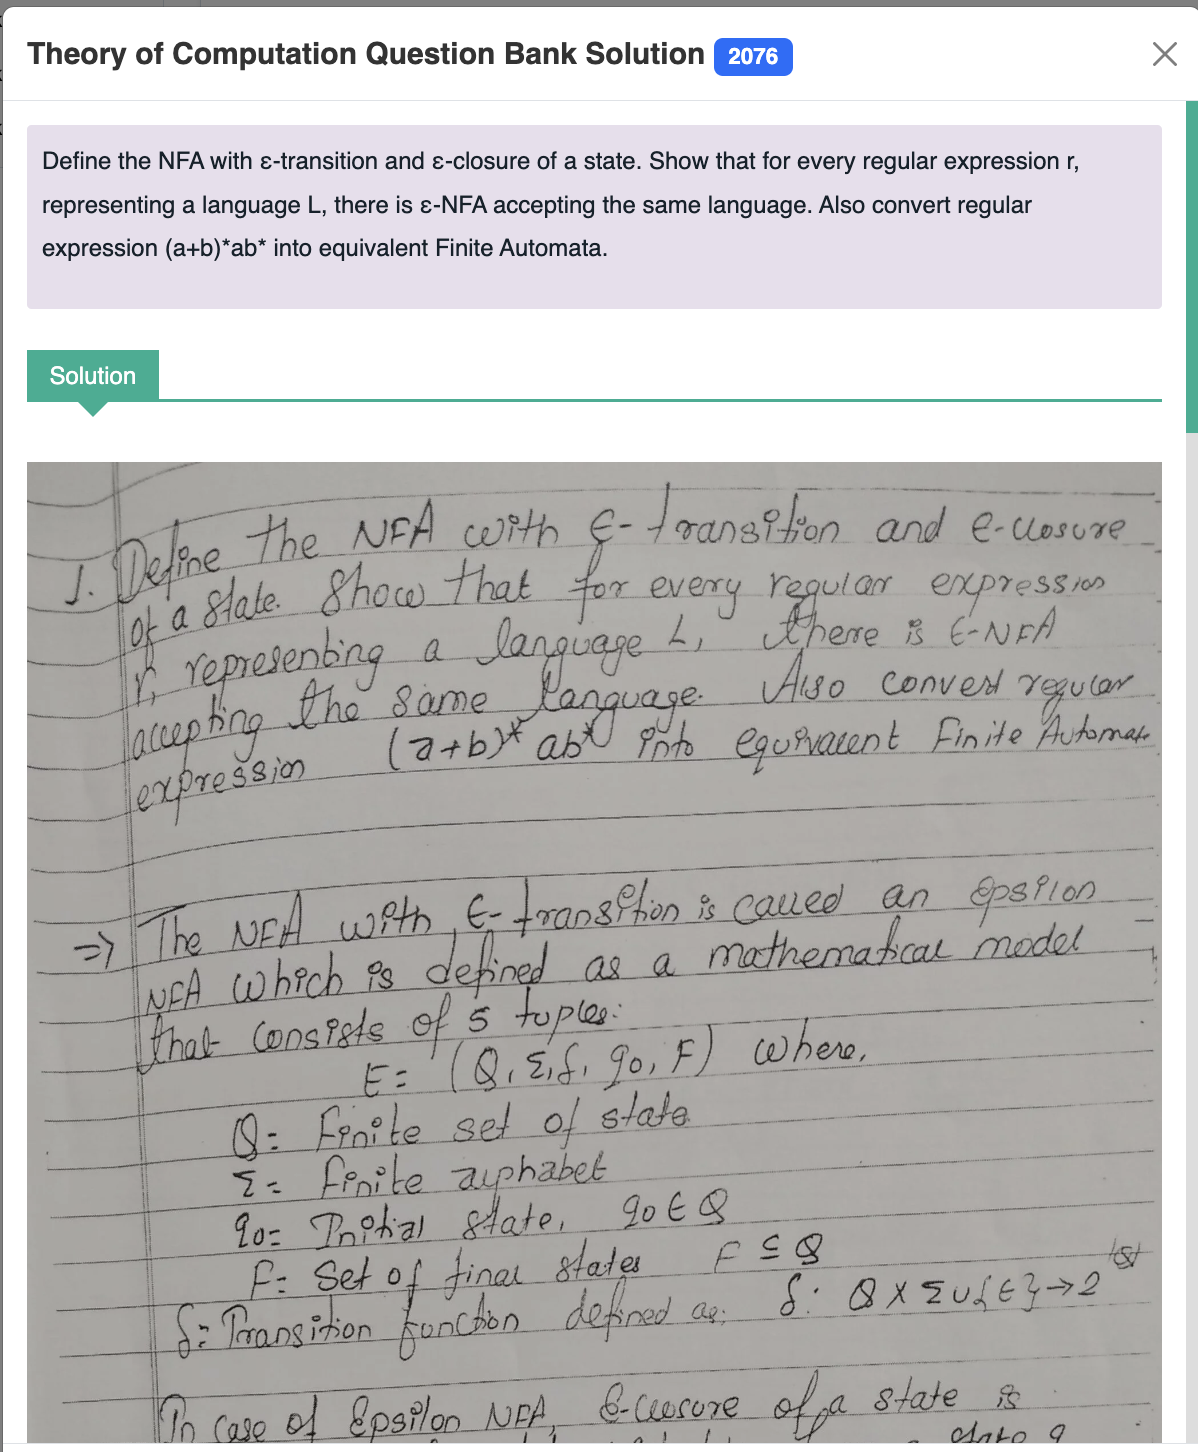 Theory of Computation Question Bank Solution 2076
Define the NFA with ε-transition and ε-closure of a state. Show that for every regular expression r,
representing a language L, there is ε-NFA accepting the same language. Also convert regular
expression (a+b)*ab* into equivalent Finite Automata.
Solution
1. Define the NFA with ϵ-transition and e-closure
of a state. Show that for every regular expression
r, representing a language L, there is ϵ-NFA
accepting the same language. Also convert regular
expression (a+b)* ab* into equivalent Finite Automata
=> The NFA with ϵ-transition is called an epsilon
NFA which is defined as a mathematical model
that consists of 5 tuples:
E = (Q, Σ, δ, q0, F) where,
Q = finite set of state
Σ = finite alphabet
q0 = Initial state, q0 ∈ Q
F = Set of final states F ⊆ Q
δ = Transition function defined as: δ: Q X Σ ∪ {ϵ} → 2
In case of Epsilon NFA, ϵ-closure of a state is
state q